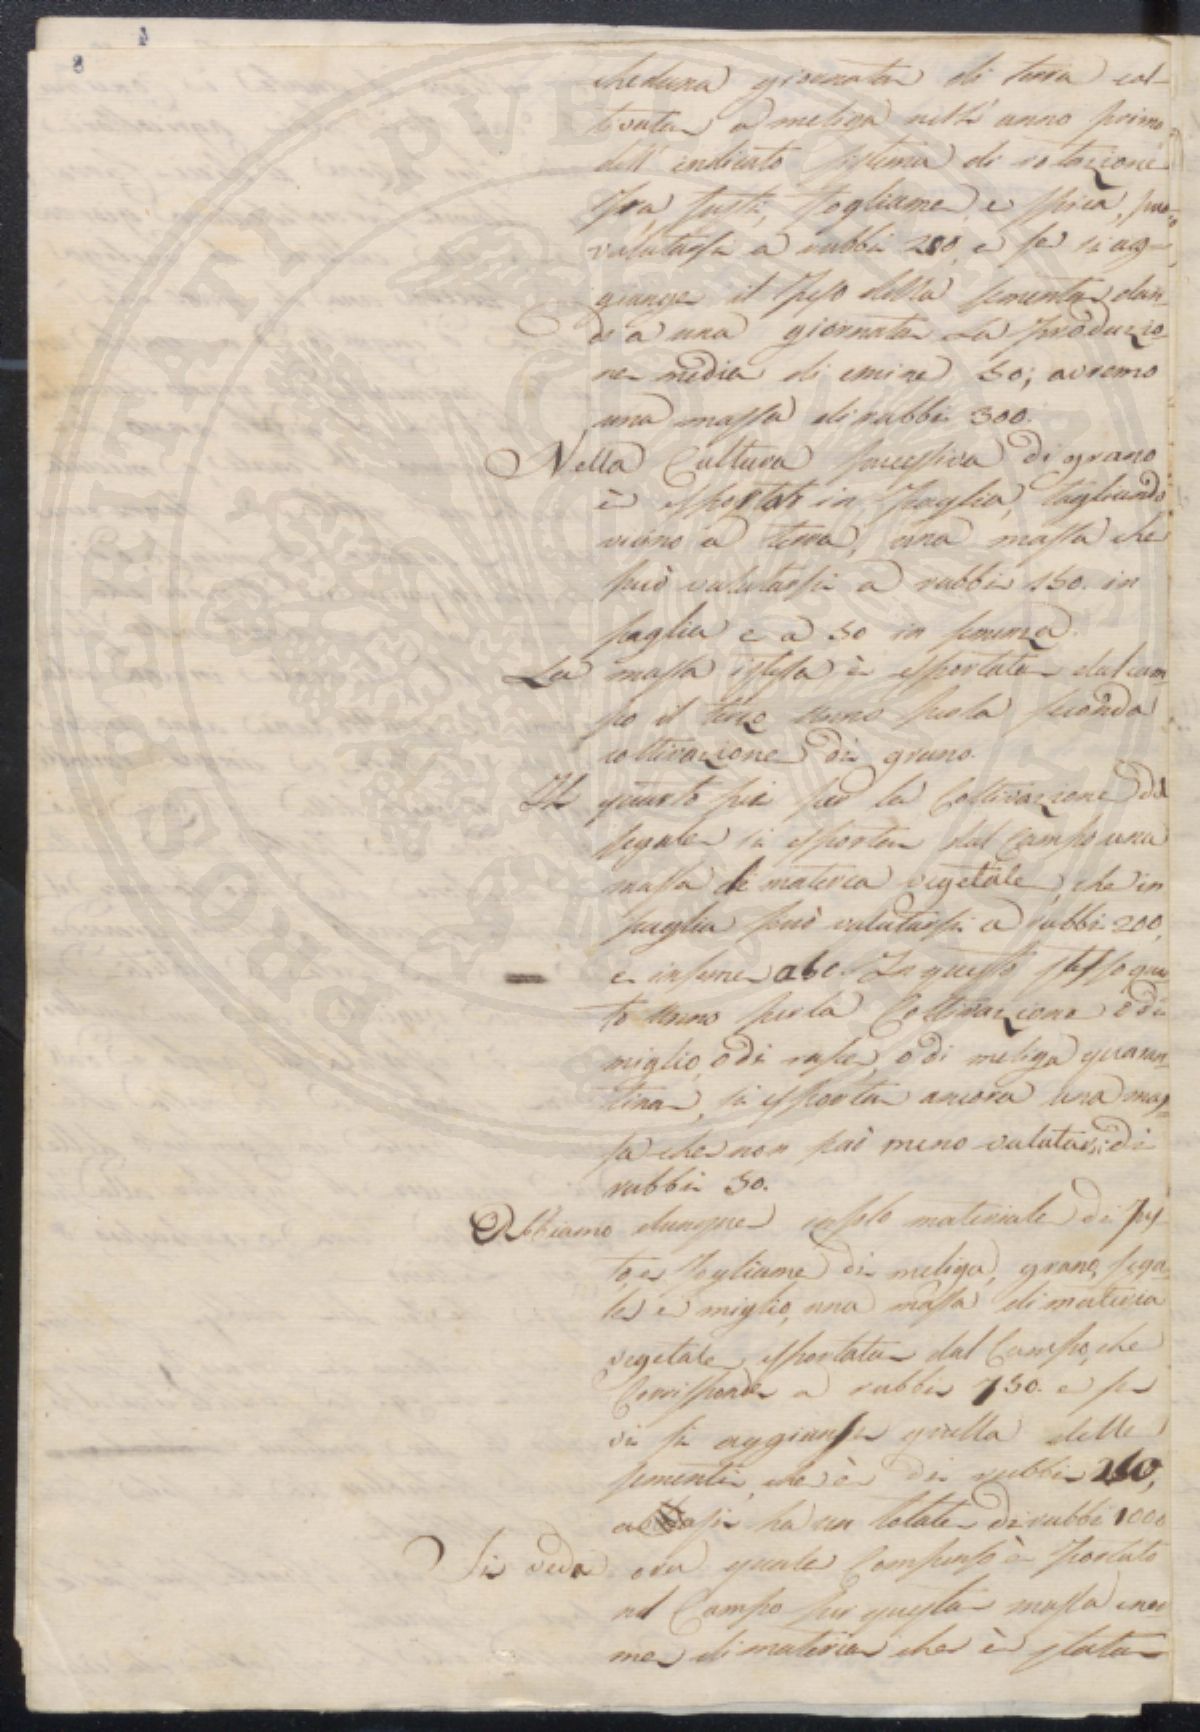 8
che d'una giornata di terra col-
tivata a meliga nell'anno primo
dell'indicato sistema di rotazione
fra fusti, fogliame, e spica, può
valutarsi a rubbi 250, e se si ag-
giunge il peso della semente dan-
do a una giornata la produzio-
ne media di emine 50; avremo
una massa di rubbi 300.
Nella Coltura successiva di grano
è esportata in paglia, tagliando
vicino a terra, una massa che
può valutarsi a rubbi 150. in
paglia e a 50 in semenza.
La massa istessa è esportata dal cam-
po il terzo anno per la seconda
coltivazione di grano.
Il quarto poi per la Coltivazione di
segale si esporta dal Campo una
massa di materia vegetale, che in
paglia può valutarsi a rubbi 200,
e in seme a 60. In questo stesso quar-
to anno per la Coltivazione o di
miglio, o di rape, o di meliga quaran-
tina, si esporta ancora una mas-
sa che non può meno valutarsi di
rubbi 50.
Abbiamo dunque in solo materiale di fus-
to, e fogliame di meliga, grano, sega-
le, e miglio, una massa di materia
vegetale esportata dal Campo, che
Corrisponde a rubbi 750. e se
vi si aggiunge quella delle
sementi, che è di rubbi 250,
si ha un totale di rubbi 1000
Si veda ora quale Compenso è portato
al Campo per questa massa enor-
me di materia che è stata
PROSPERITATI PVBLICAE